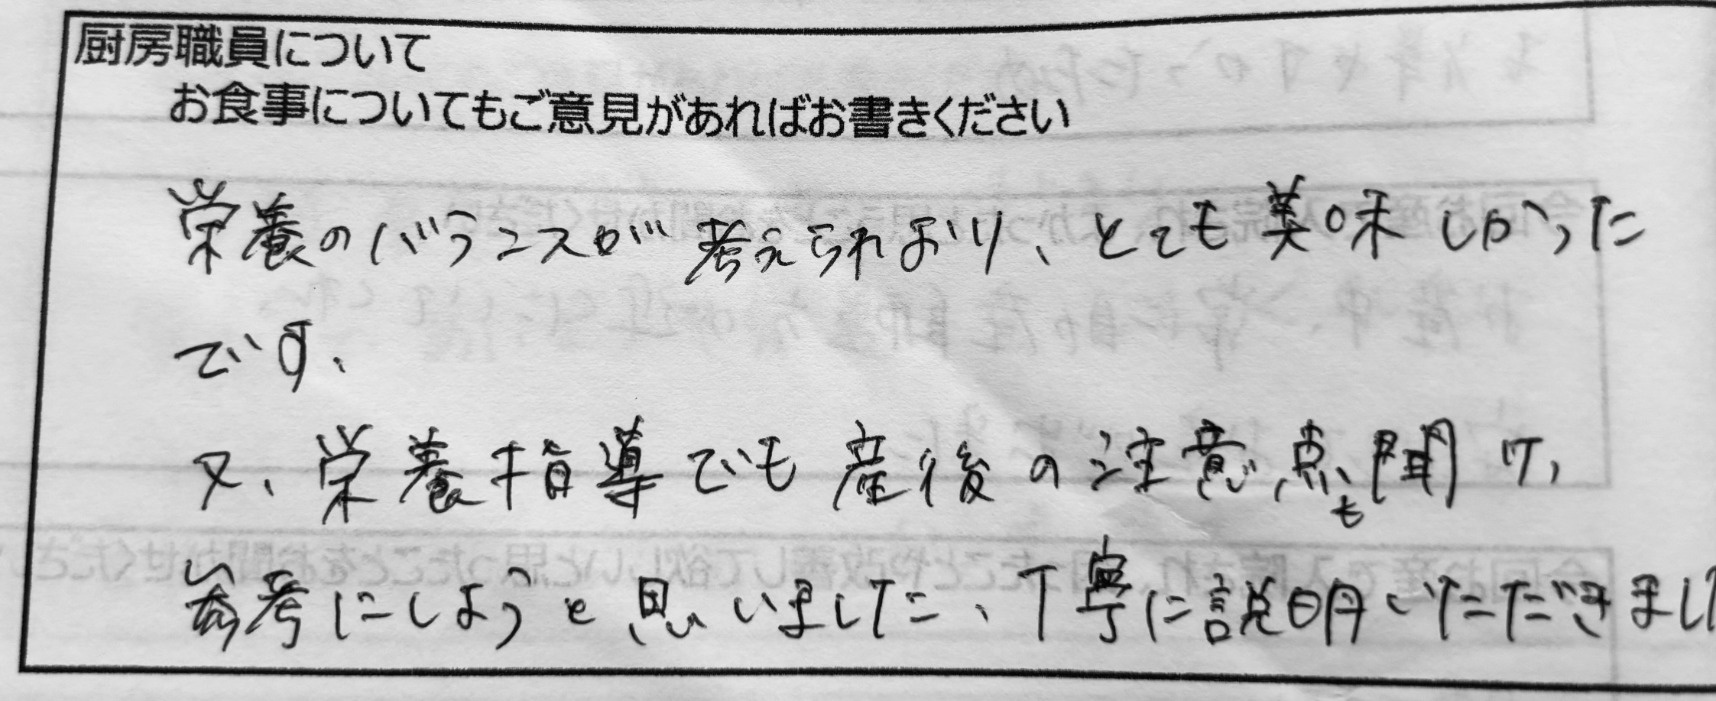 厨房職員について
お食事についてもご意見があればお書きください
栄養のバランスが考えられおり、とても美味しかった
です。
又、栄養指導でも産後の注意点も聞け、
参考にしようと思いました、丁寧に説明いただきまし